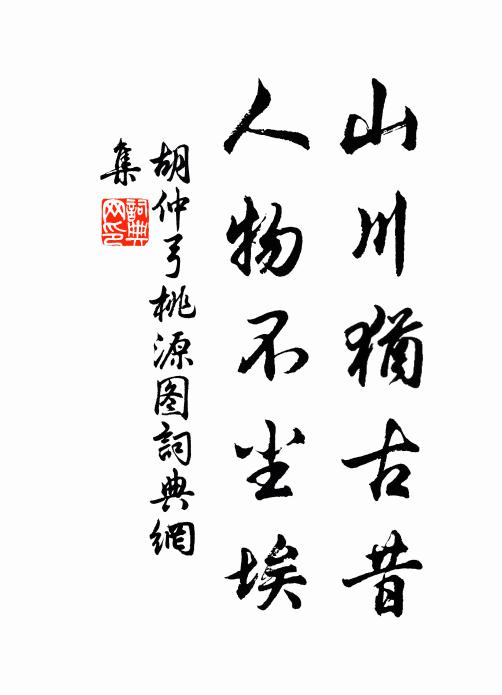 山川犹古昔
人物不尘埃
胡仲弓桃源图詞典網
集
詞典
网印